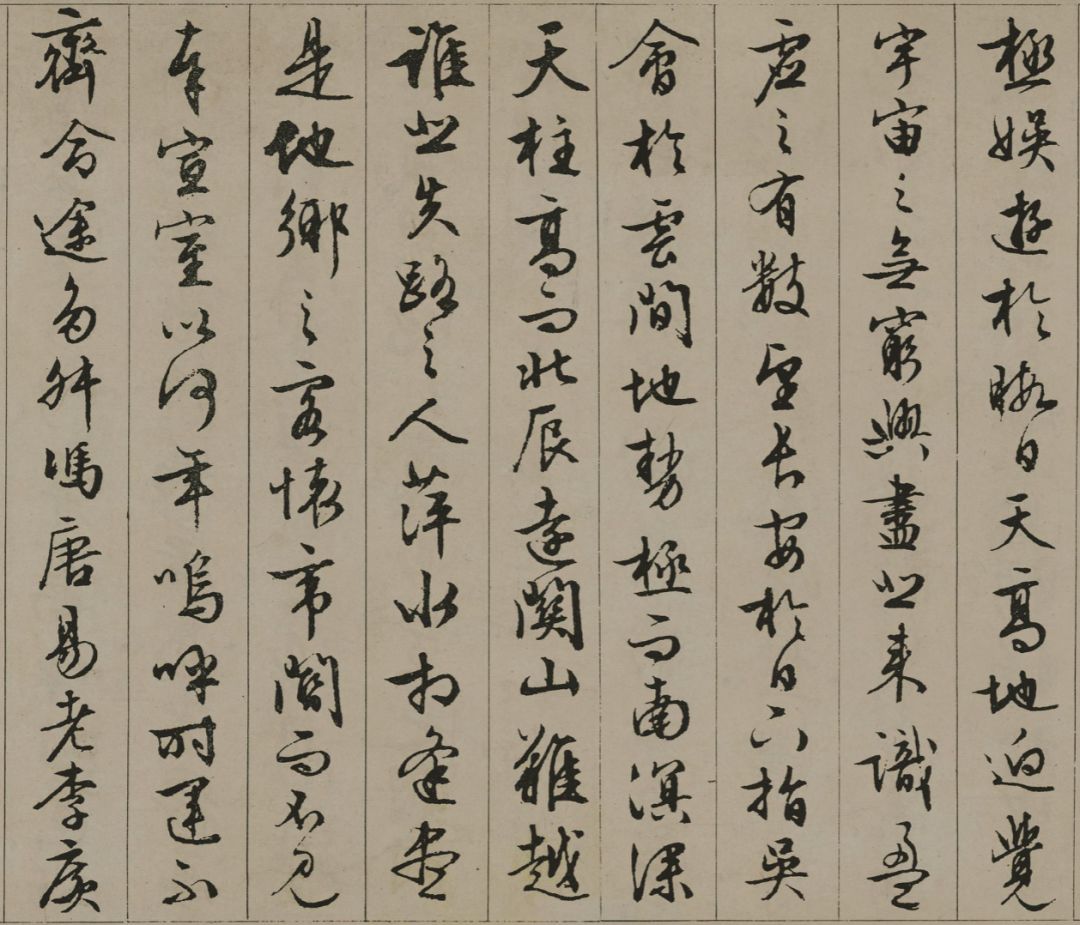 極娛遊於暇日天高地迥覺
宇宙之無窮興盡悲來識盈
虛之有數望長安於日下指吳
會於雲間地勢極而南溟深
天柱高而北辰遠關山難越
誰悲失路之人萍水相逢盡
是他鄉之客懷帝閽而不見
奉宣室以何年嗚呼時運不
齊命途多舛馮唐易老李廣